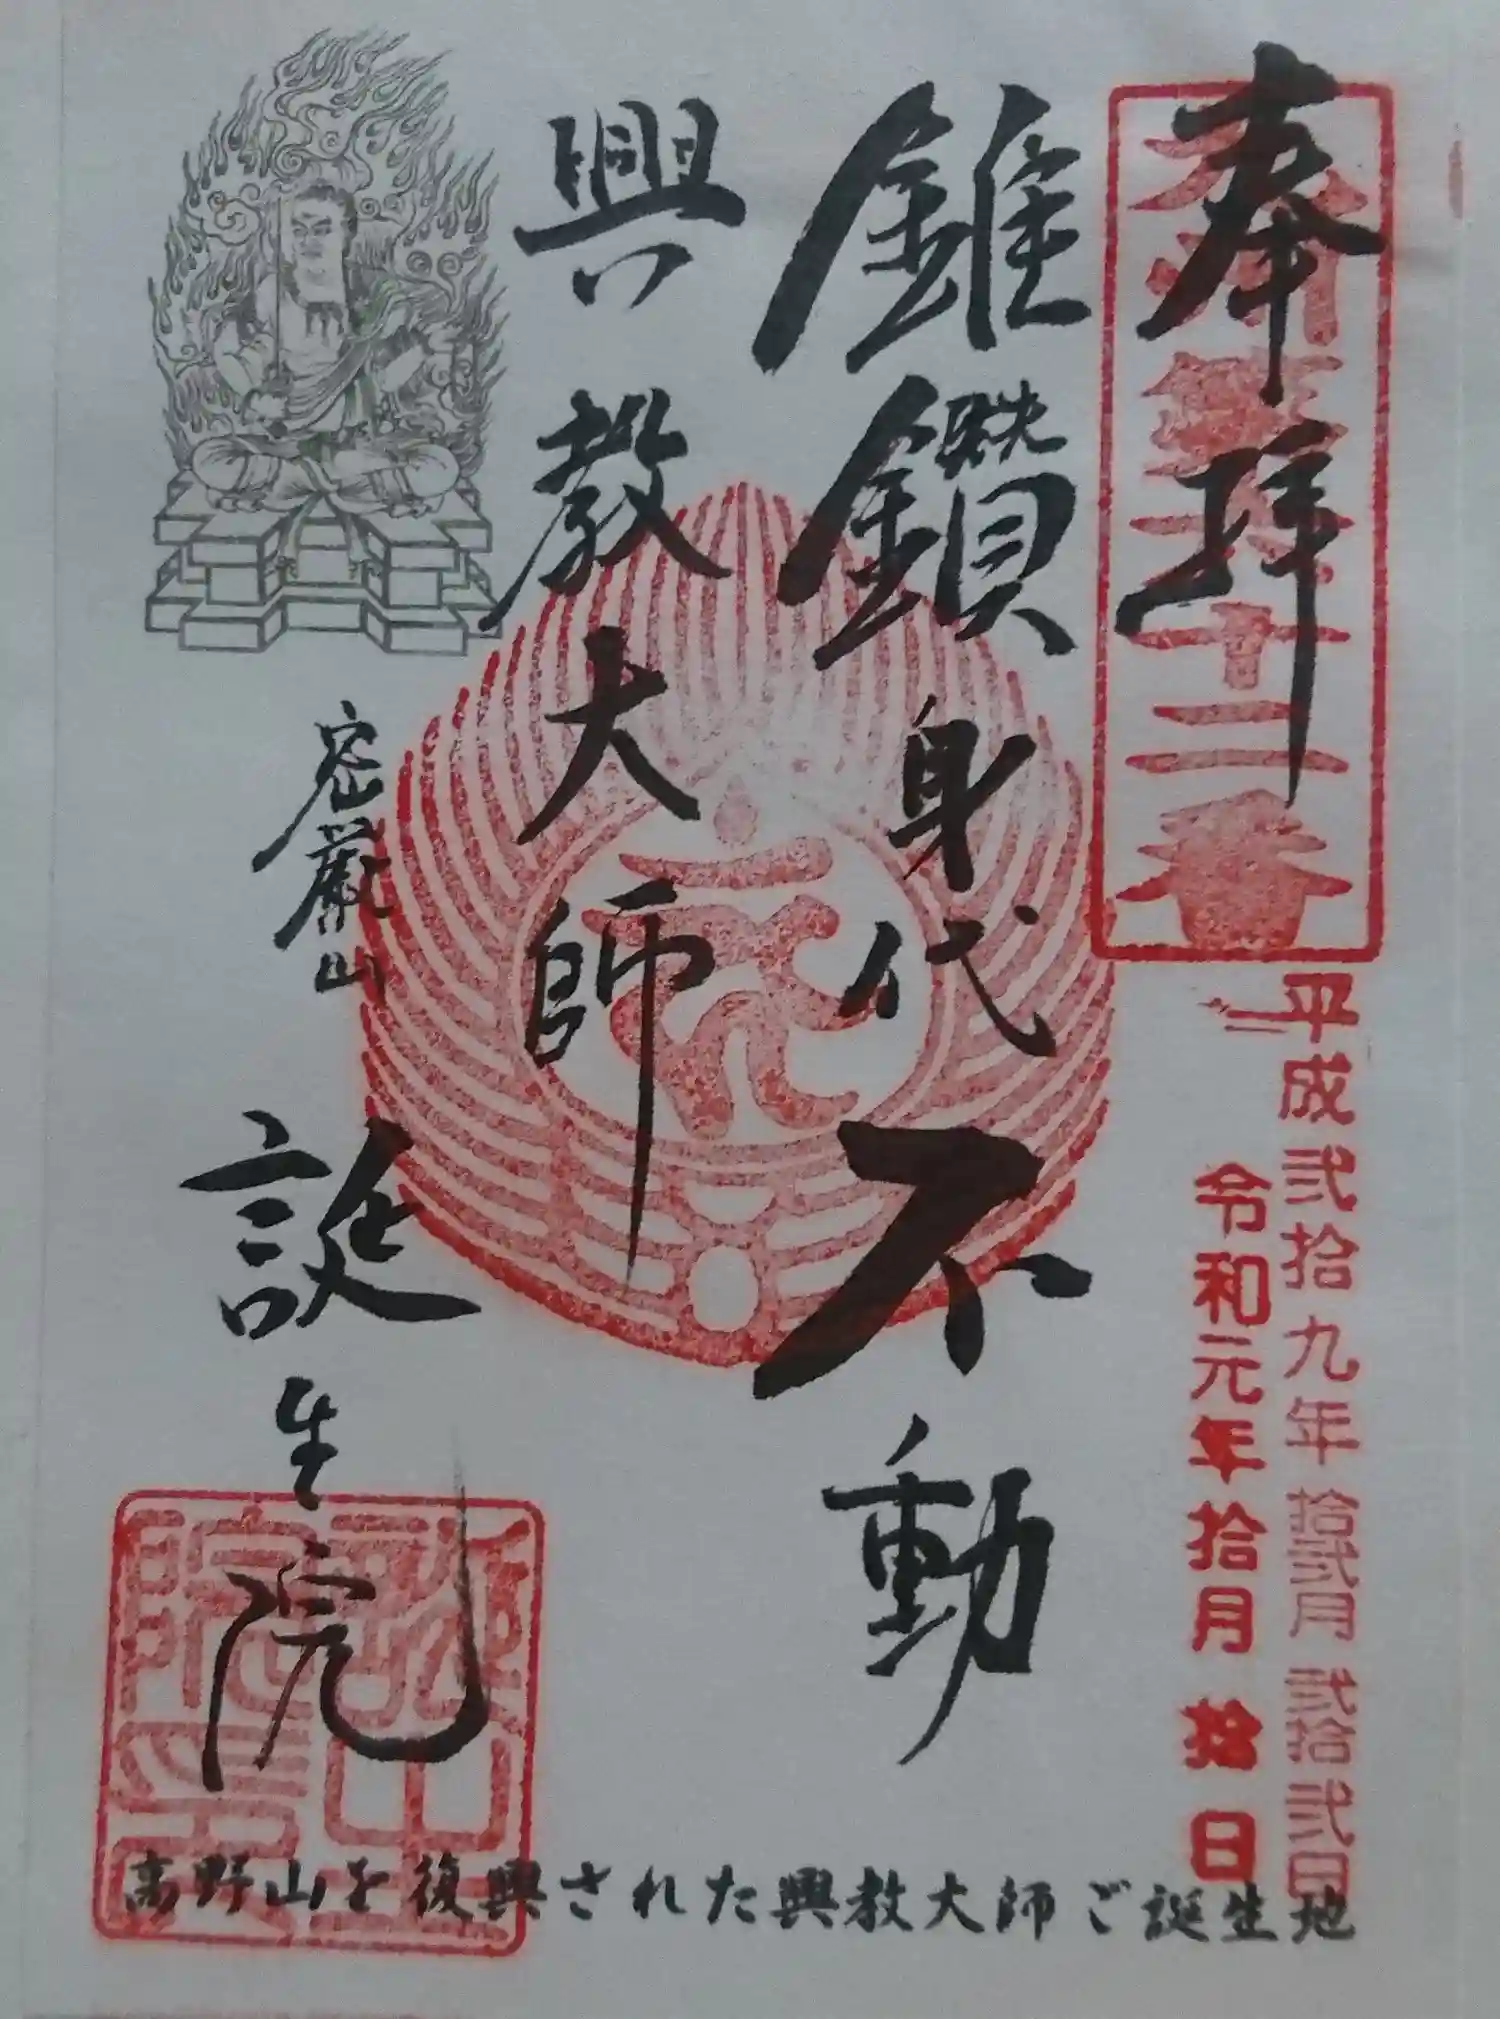 奉拝
九州第六十二番
平成弐拾九年拾弐月弐拾弐日
令和元年拾月拾日
錐鑽身代不動
興教大師
密厳山
誕生院
高野山を復興された興教大師ご誕生地